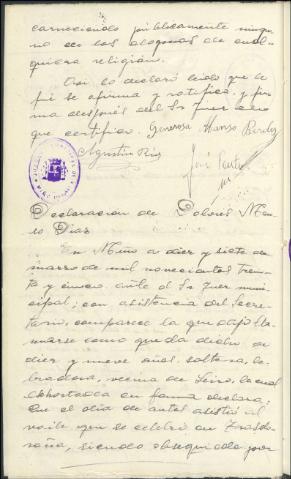 carneciendo públicamente ningu
no de los dogmas de cual
quiera religión.
Así lo declaró leido que le
fué se afirma y ratifica, y fir
ma después del Sr Juez de lo
que certifico. Generosa Alonso
Agustin Rios
José
Declaracion de Dolores Men
Diaz
En Miño a diez y siete de
marzo de mil novecientos trein
ta y cinco, ante el Sr Juez mu
nicipal; con asistencia del Secre
tario, comparece la que dijo lla
marse como queda dicho de
diez y nueve años, soltera, la
bradora, vecina de Leiro, la cual
exhortada en forma declara;
Que el dia de autos asistió al
baile que se celebró en Trasdo
roña, siendo obsequiada por